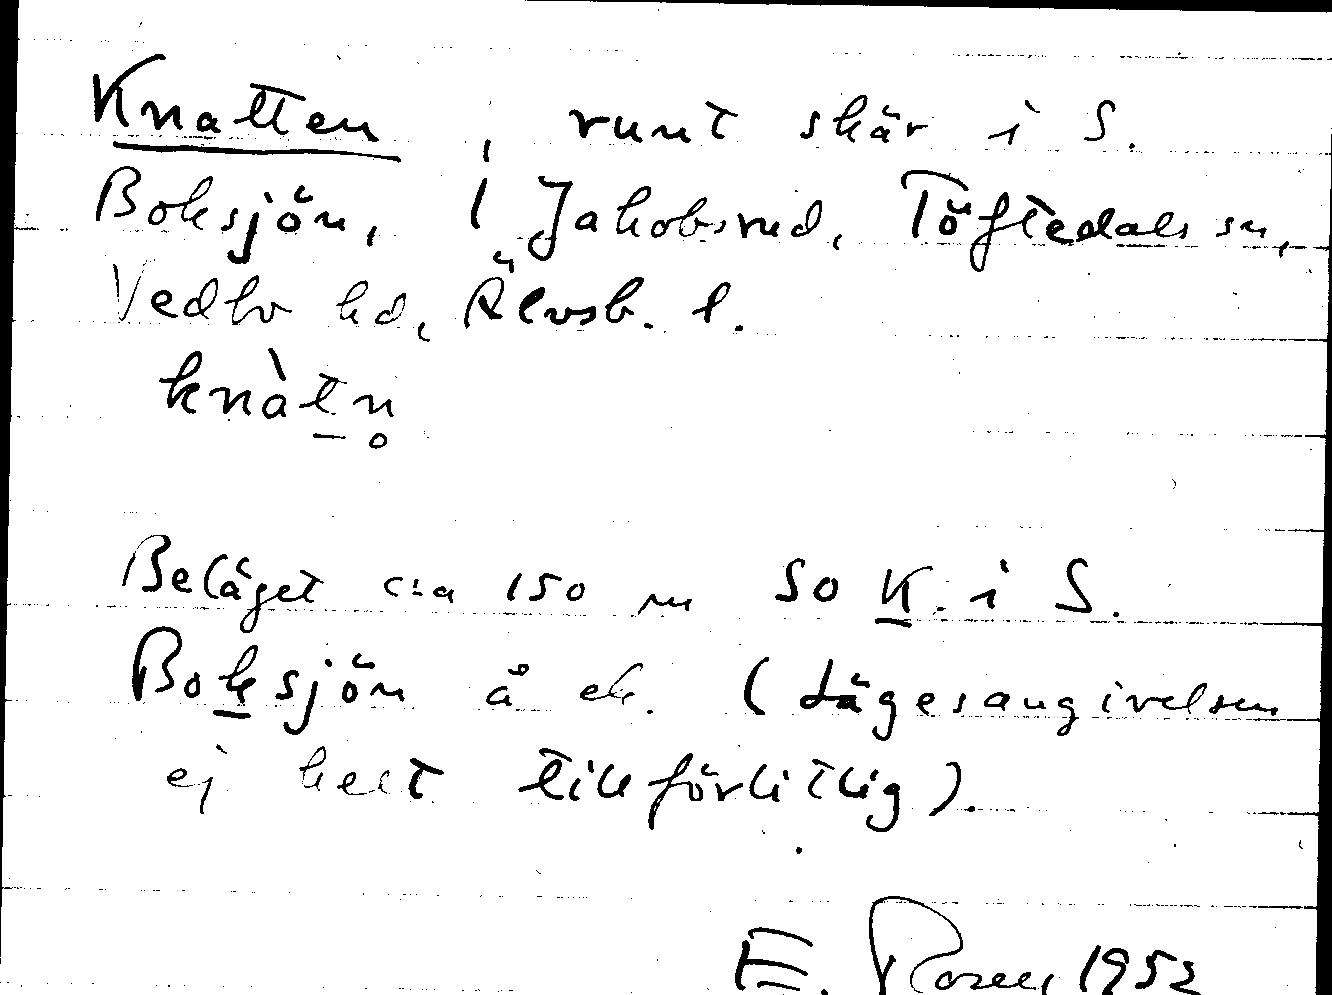 Knatten, runt skär i S.
Boksjön, l Jakobsrud, Töftedals sn,
Vedbo hd, Älvsb. l.
knàtn̥
Beläget c:a 150 m SO K. i S.
Boksjön å ek. (Lägesangivelsen
ej helt tillförlitlig).
E. Rosen 1952